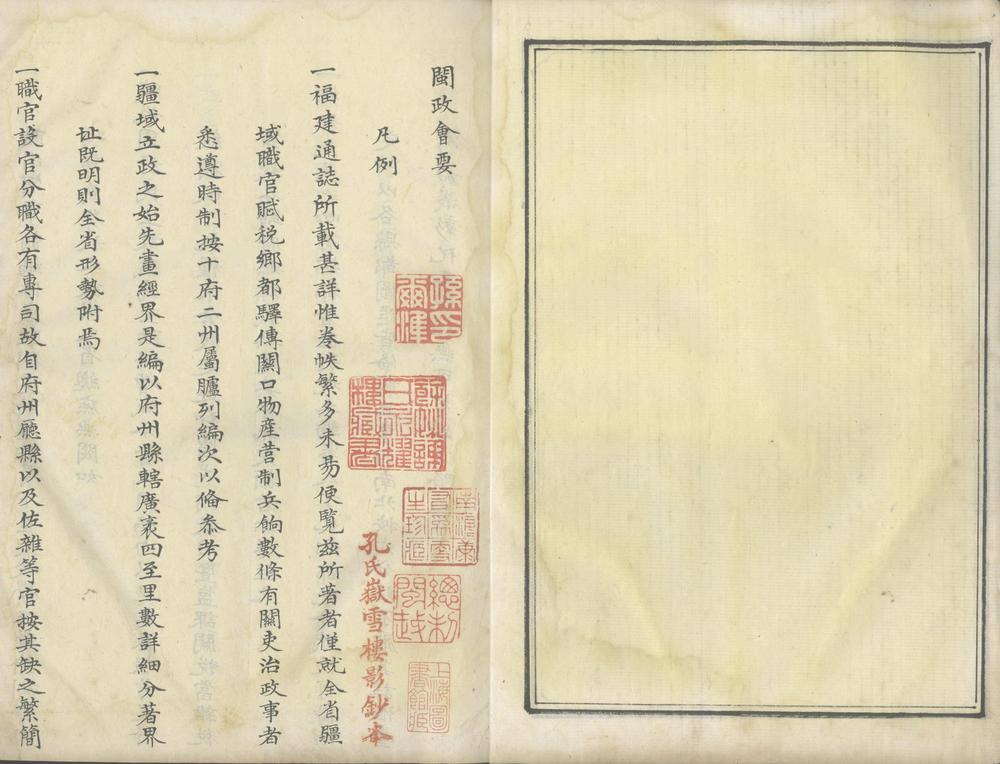 閩政會要
凡例
一福建通誌所載甚詳惟卷帙繁多未易便覧兹所著者僅就全省疆
域職官賦税鄉都驛傳關口物產營制兵餉數條有關吏治政事者
悉遵時制按十府二州屬臚列編次以俻叅考
一疆域立政之始先畫經界是編以府州縣轄廣袤四至里數詳細分著界
址既明則全省形勢附焉
一職官設官分職各有專司故自府州廳縣以及佐雜等官按其缺之繁簡
孫印爾準
餘姚謝
南海康
總制
閩越
上海圖
書館藏
孔氏嶽雪樓影鈔本